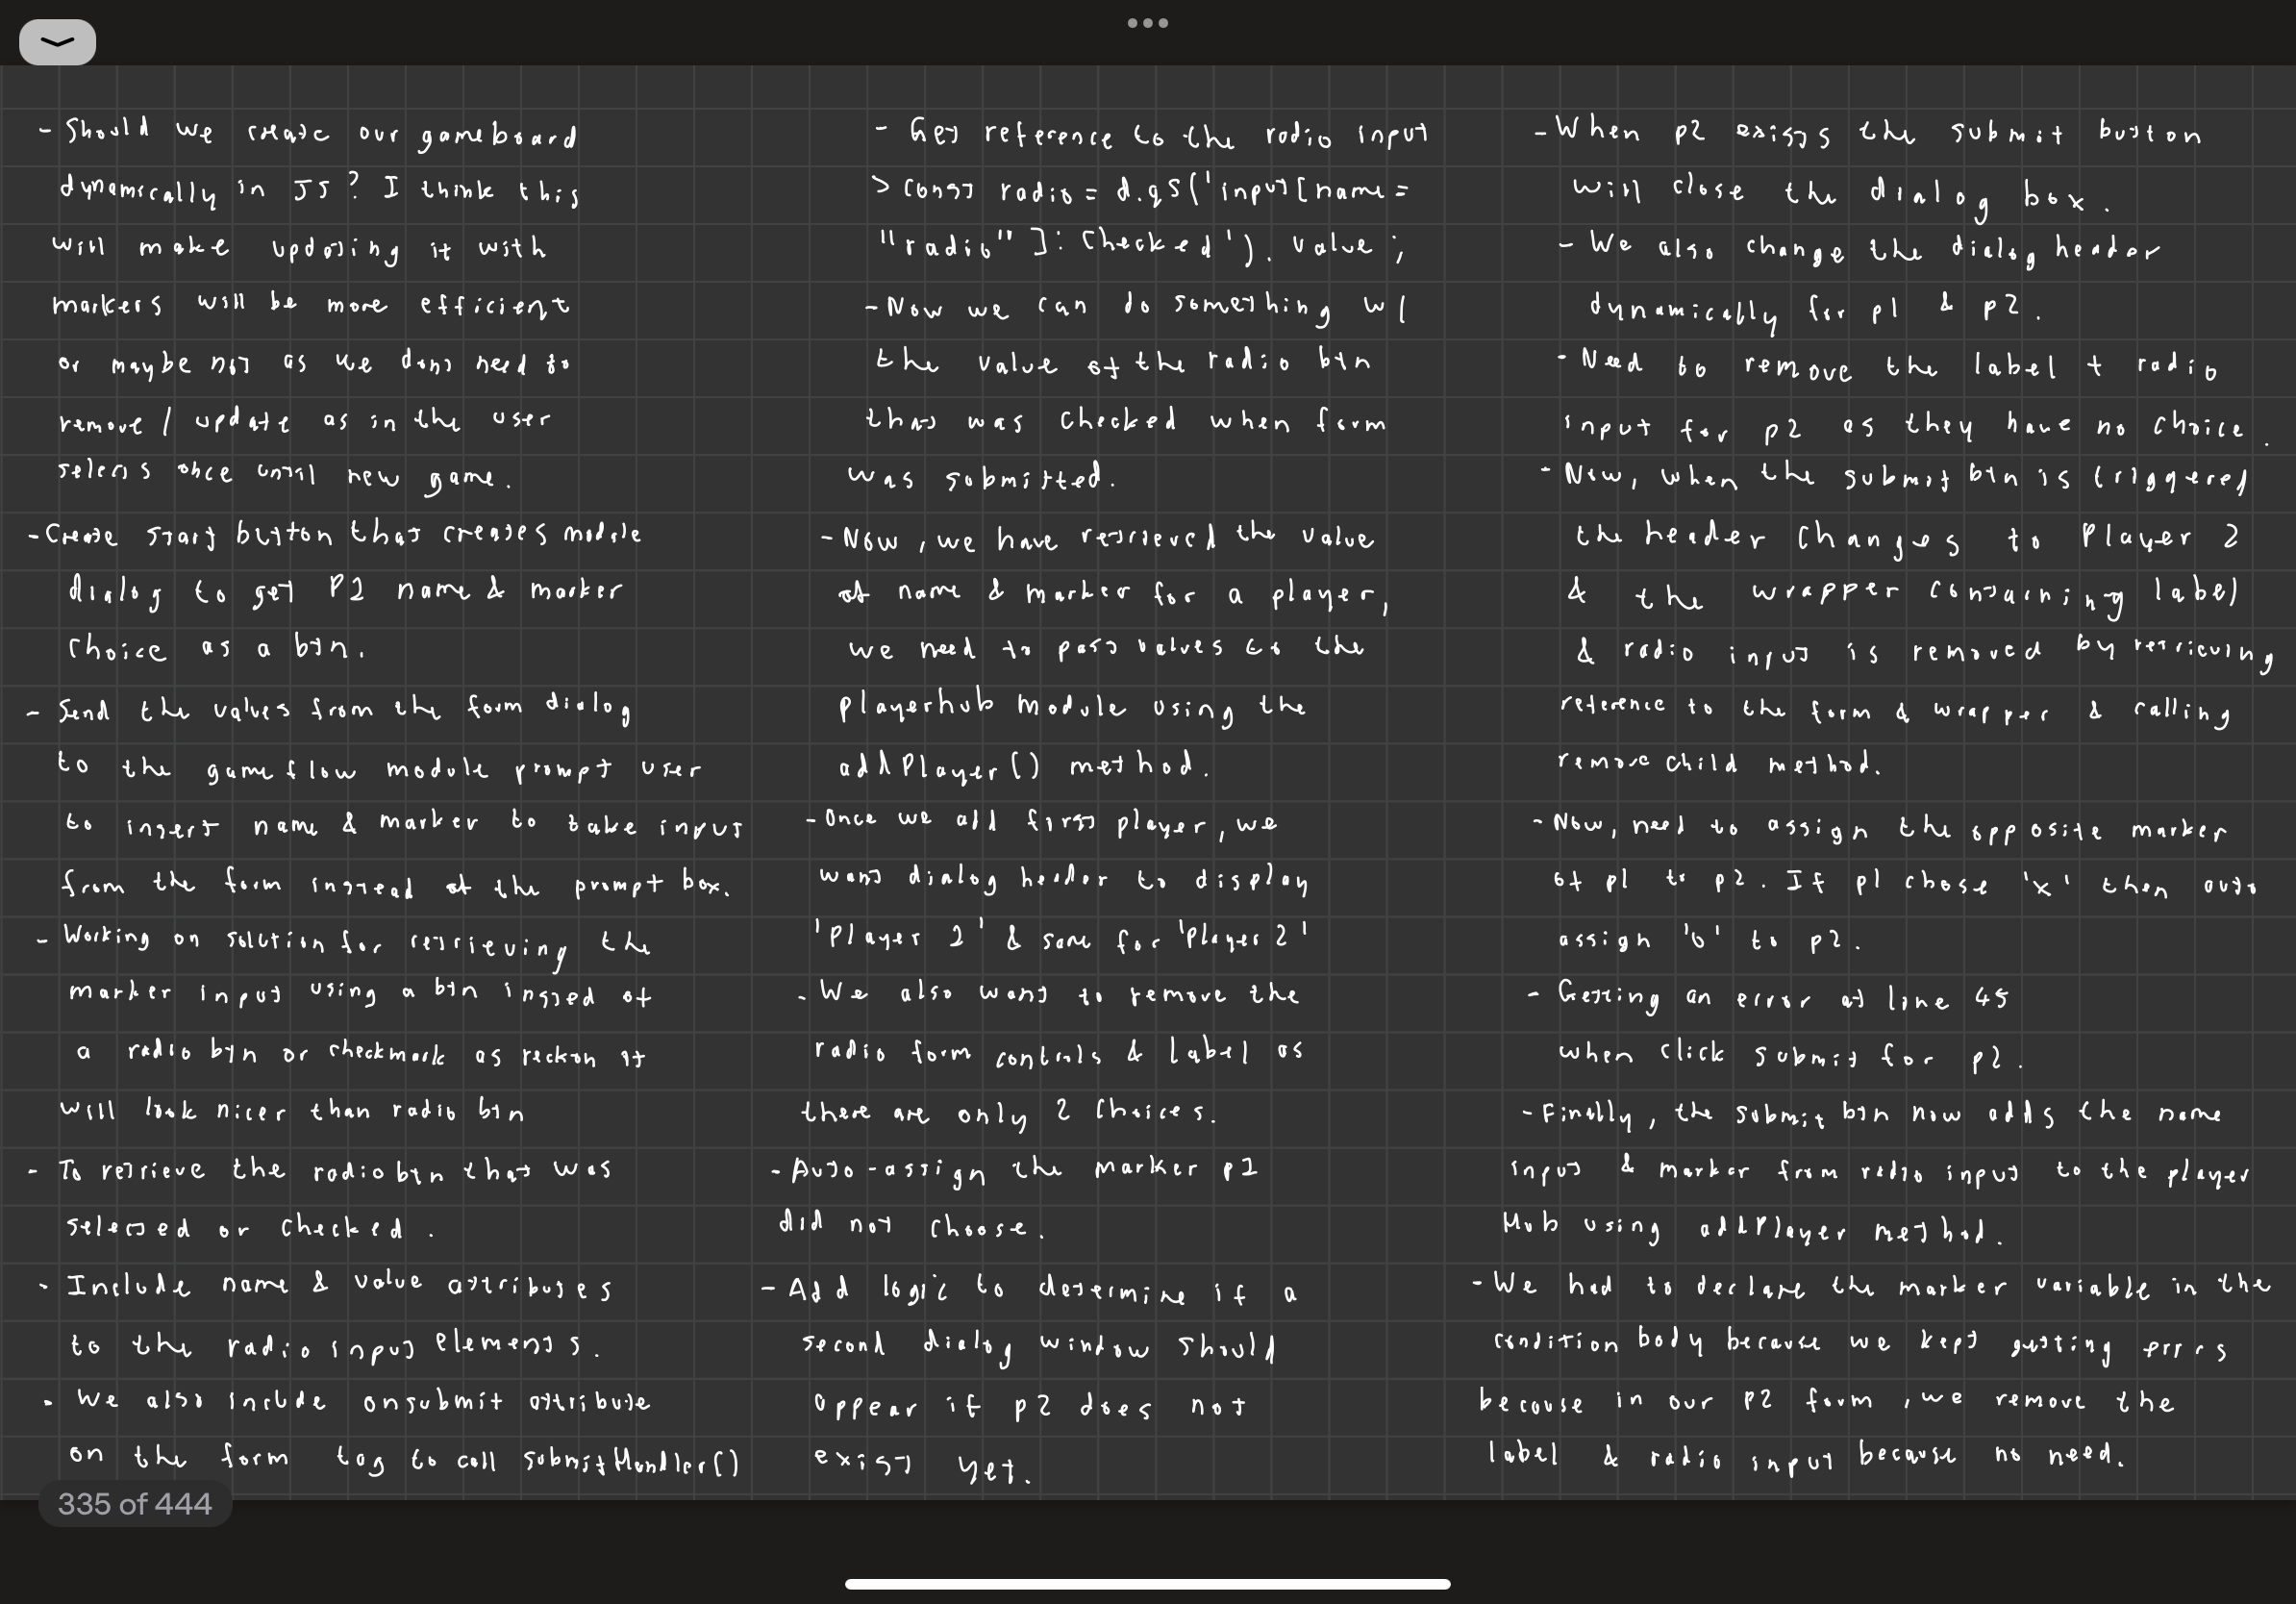 - Should we create our gameboard
dynamically in JS? I think this
will make updating it with
markers will be more efficient
or maybe not as we dont need to
remove / update as in the user
selects once until new game.
- Create start button that creates module
dialog to get P2 name & marker
choice as a btn.
- Send the values from the form dialog
to the gameflow module prompt user
to insert name & marker to take input
from the form instead of the prompt box.
- Working on solution for retrieving the
marker input using a btn insted of
a radio btn or checkmark as reckon it
will look nicer than radio btn
- To retrieve the radio btn that was
selected or checked.
- Include name & value attributes
to the radio input elements.
- We also include onsubmit attribute
on the form tag to call submitHandler()
- Get reference to the radio input
> const radio = d.qS('input[name=
"radio"]:checked').value;
- Now we can do something w/
the value of the radio btn
that was checked when form
was submitted.
- Now, we have retrieved the value
of name & marker for a player,
we need to pass values to the
playerhub module using the
addPlayer() method.
- Once we add first player, we
want dialog header to display
'Player 2' & same for 'Player 2'
- We also want to remove the
radio form controls & label as
there are only 2 choices.
- Auto-assign the marker p1
did not choose.
- Add logic to determine if a
second dialog window should
appear if p2 does not
exist yet.
- When p2 exists the submit button
will close the dialog box.
- We also change the dialog header
dynamically for p1 & p2.
- Need to remove the label + radio
input for p2 as they have no choice.
- Now, when the submit btn is triggered
the header changes to Player 2
& the wrapper containing label
& radio input is removed by retrieving
reference to the form & wrapper & calling
remove child method.
- Now, need to assign the opposite marker
of p1 to p2. If p1 chose 'x' then auto
assign 'o' to p2.
- Getting an error at line 45
when click submit for p2.
- Finally, the submit btn now adds the name
input & marker from radio input to the player
Hub using addPlayer method.
- We had to declare the marker variable in the
condition body because we kept getting errrs
because in our P2 form, we remove the
label & radio input because no need.
335 of 444